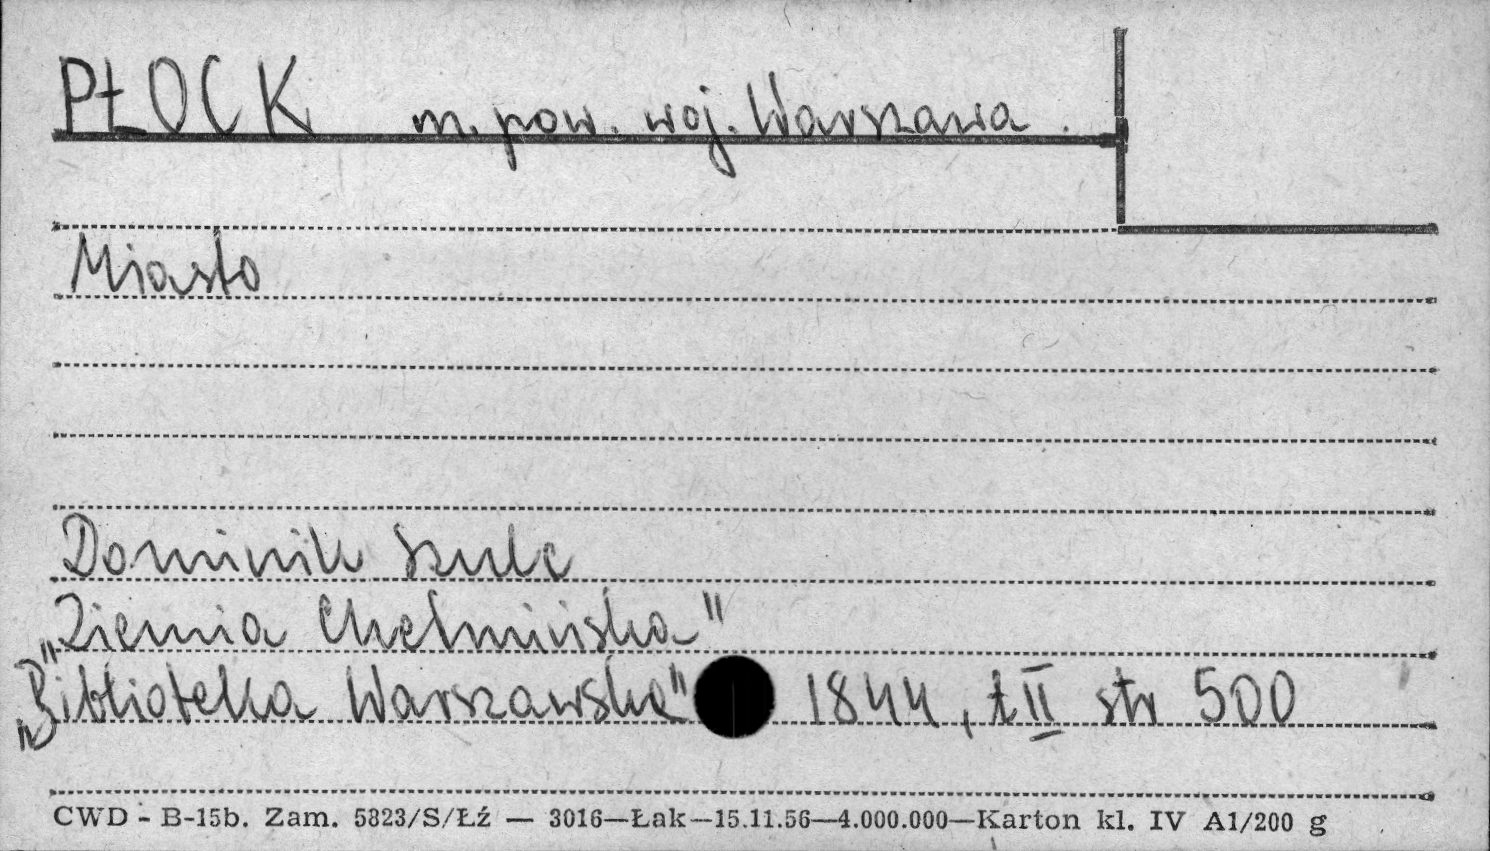 PŁOCK m. pow. woj. Warszawa.
Miasto
Dominik Szulc
„Ziemia Chełmińska"
„Biblioteka Warszawska" 1844, t II str 500
CWD - B-15b. Zam. 5823/S/Łź — 3016—Łak—15.11.56—4.000.000—Karton kl. IV A1/200 g